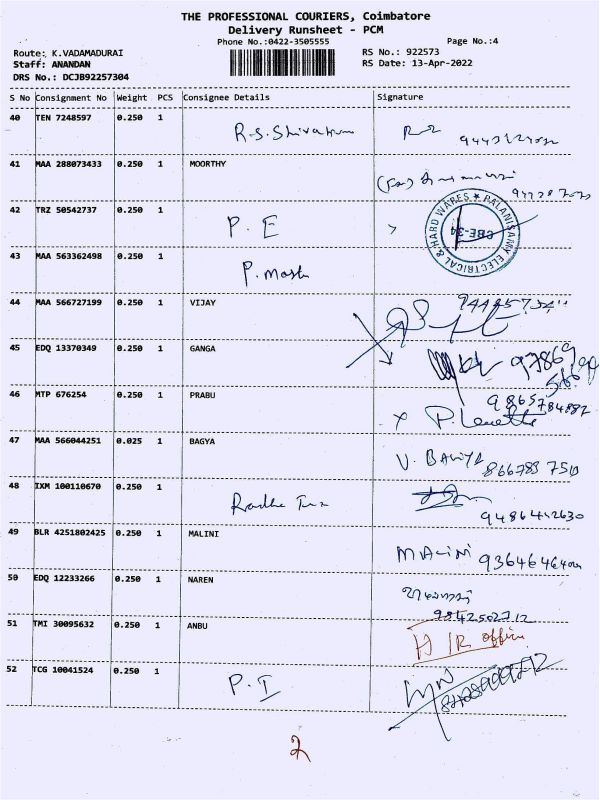 THE PROFESSIONAL COURIERS, Coimbatore
Delivery Runsheet - PCM
Phone No.:0422-3505555 Page No.:4
Route: K.VADAMADURAI RS No.: 922573
Staff: ANANDAN RS Date: 13-Apr-2022
DRS No.: DCJB92257304
S No Consignment No Weight PCS Consignee Details Signature
40 TEN 7248597 0.250 1 R.S.Shivakum
41 MAA 288073433 0.250 1 MOORTHY
42 TRZ 50542737 0.250 1 P. E
PALANISAMY ELECTRICAL & HARD WARES ★ CBE-34
43 MAA 563362498 0.250 1 P.
44 MAA 566727199 0.250 1 VIJAY
45 EDQ 13370349 0.250 1 GANGA 97869
46 MTP 676254 0.250 1 PRABU 9865784882
47 MAA 566044251 0.025 1 BAGYA V. BAGIYA
48 IXM 100110670 0.250 1 Radhe 9486412630
49 BLR 4251802425 0.250 1 MALINI MALINI
50 EDQ 12233266 0.250 1 NAREN 9842502712
51 TMI 30095632 0.250 1 ANBU HR office
52 TCG 10041524 0.250 1 P. I
2